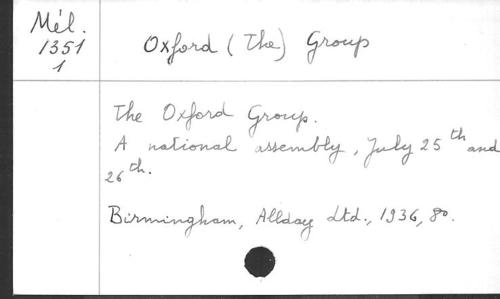 Mél.
1351
1
Oxford (The) Group
The Oxford Group.
A national assembly, July 25th and
26th.
Birmingham, Allday Ltd., 1936, 8o.